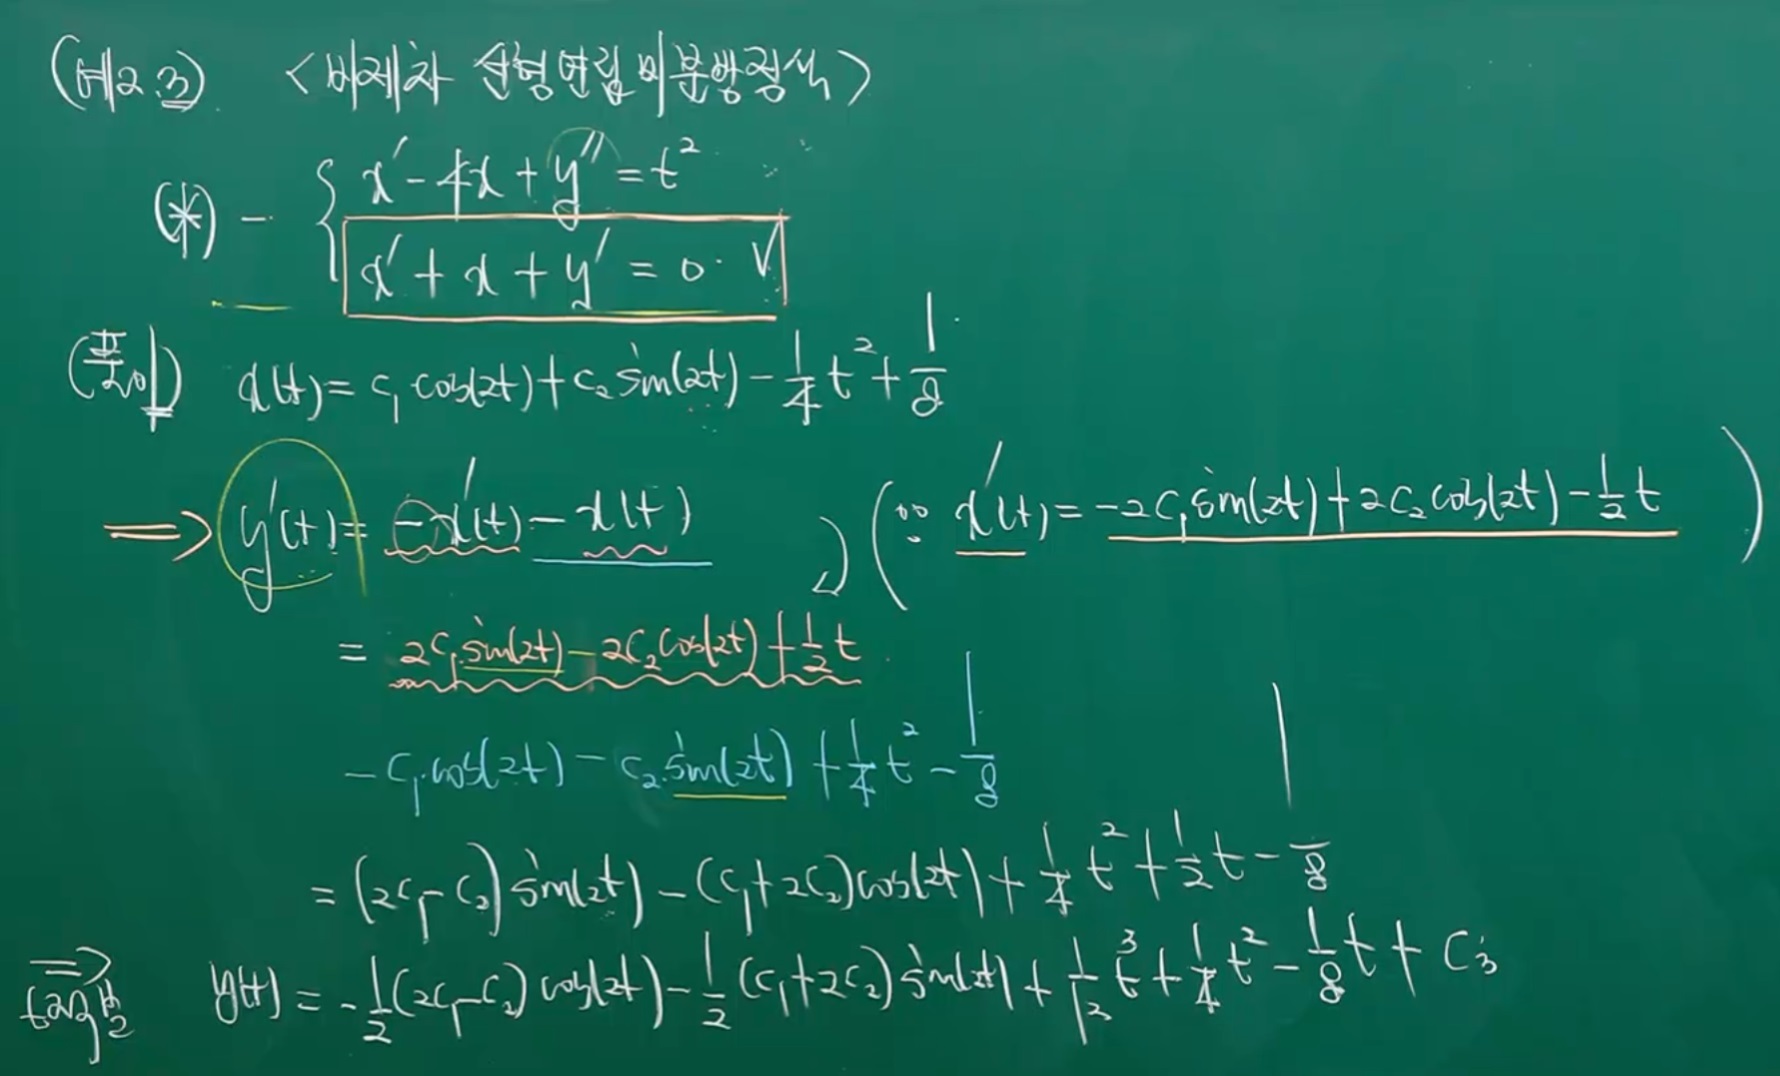 (예2.3) <비제차 선형연립미분방정식>
(*) - { x′ - 4x + y″ = t²
x′ + x + y′ = 0. √
(풀이) x(t) = c₁ cos(2t) + c₂ sin(2t) - 1/4 t² + 1/8
⇒ y′(t) = -x′(t) - x(t) (∵ x′(t) = -2c₁ sin(2t) + 2c₂ cos(2t) - 1/2 t)
= 2c₁ sin(2t) - 2c₂ cos(2t) + 1/2 t
- c₁·cos(2t) - c₂·sin(2t) + 1/4 t² - 1/8
= (2c₁ - c₂) sin(2t) - (c₁ + 2c₂) cos(2t) + 1/4 t² + 1/2 t - 1/8
⇒ y(t) = -1/2 (2c₁ - c₂) cos(2t) - 1/2 (c₁ + 2c₂) sin(2t) + 1/12 t³ + 1/4 t² - 1/8 t + C₃